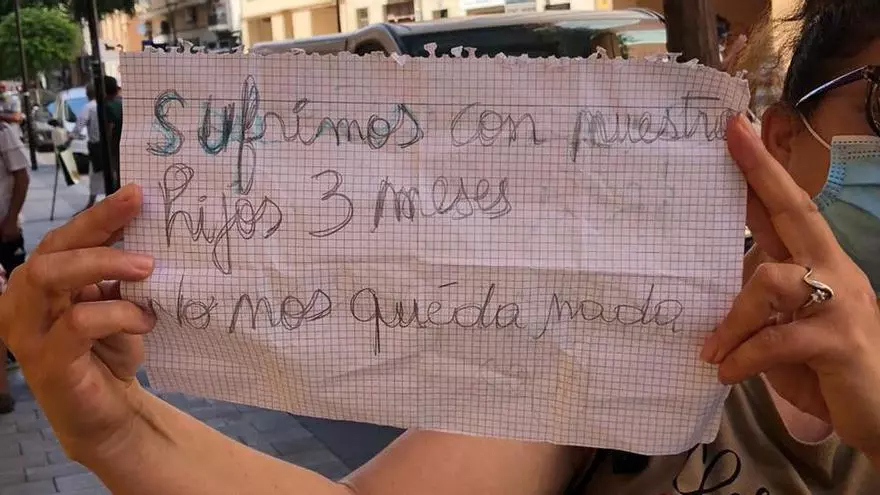 Sufrimos con nuestro
hijos 3 meses
No nos quéda nada